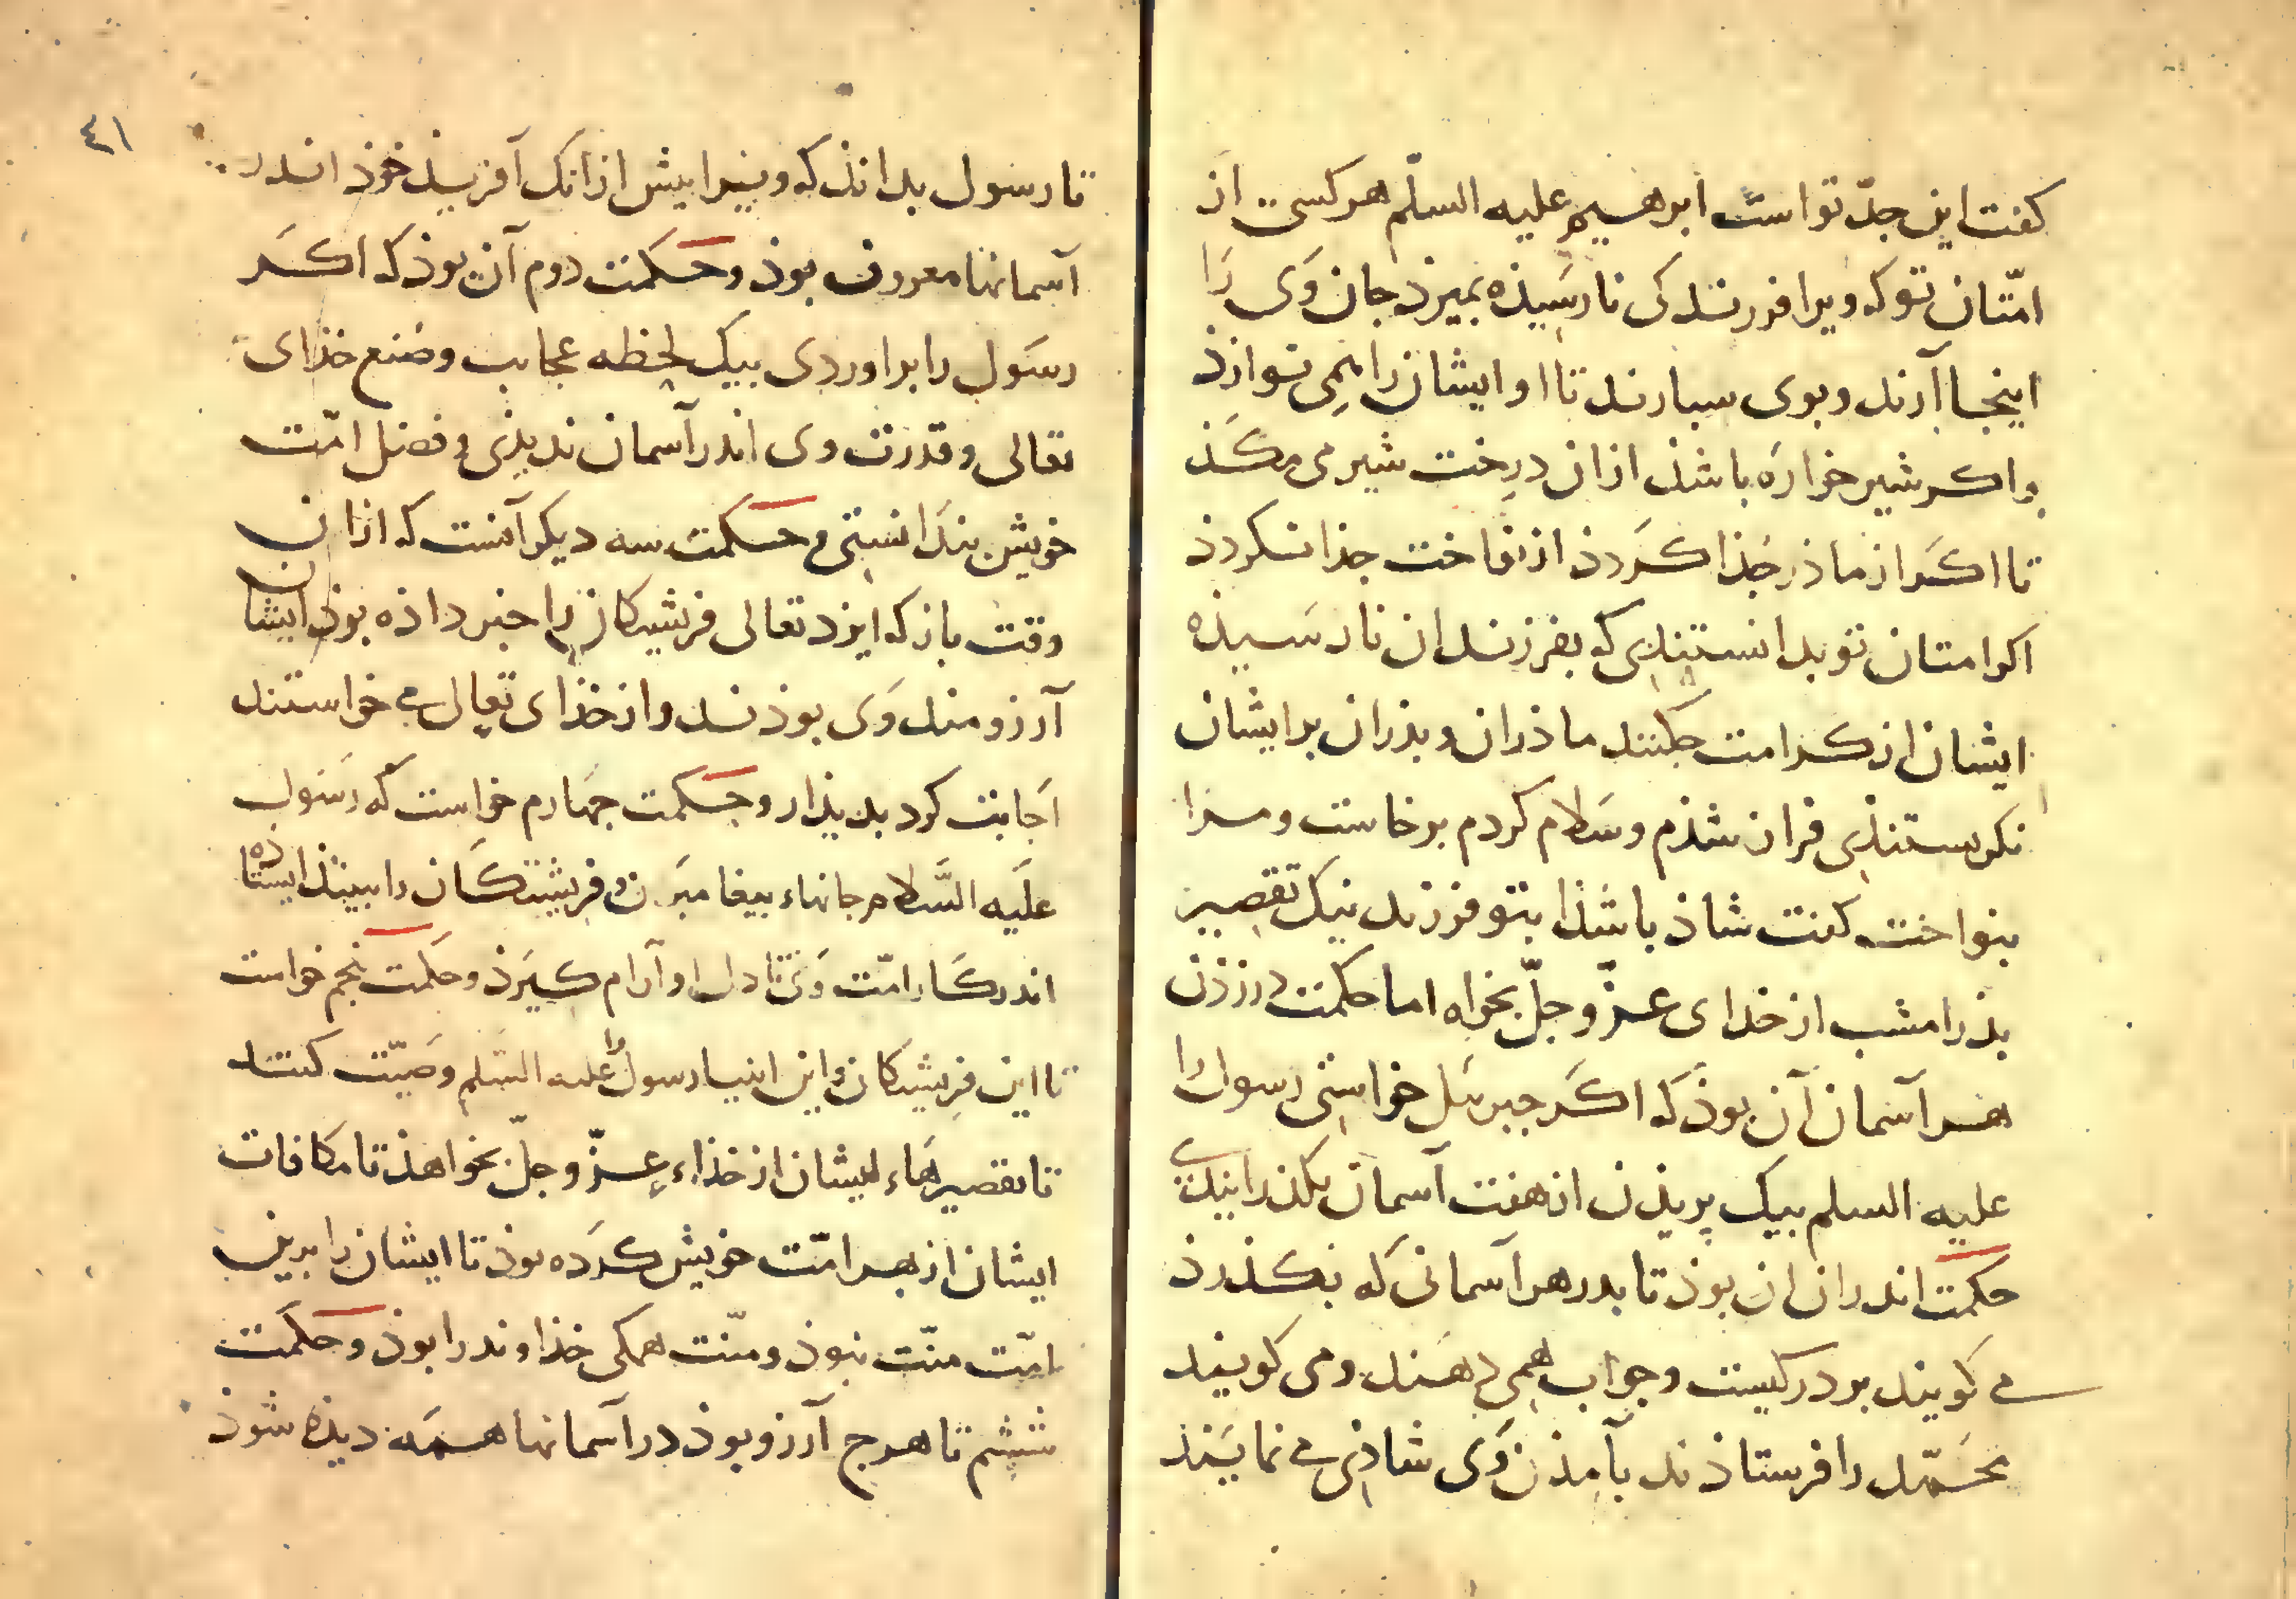 کفت این جدّ تو است ابرهیم علیه السلّم هرکسی از
امّتان تو که ویرا فررندکی نارسیذه بمیرذ جان وَی رَا
اینجا آرند و بوی سبارند تا او ایشان را همی نوازذ
و اکر شیر خواره باشذ ازان درخت شیر می مکَذ
تا اکَر از ماذر جُذا کَردذ از نواخت جذا نکردذ
اکر امتان تو بدانستندی که بفرزندان نارسیذه
ایشان از کرامت جکنند ماذران و بذران بر ایشان
نکریستنذی فراز شذم و سَلام کردم برخاست و مرا
بنواخت کفت شاذ باشذا بتو فرزند نیک تقصیر
بذر امشب از خدای عزّ و جلّ بخواه اما حکمت در زذن
هر آسمان آن بوذ که اکَر جبرئل خواستی رسول را
علیه السلم بیک پریذن از هفت آسمان بکذرانیدی
حکمت اندران ان بوذ تا بدر هر آسمانی که بکذرذ
می کویند بر در کیست و جواب همی دهند و می کویند
محَمّد را فرستاذند بآمذن وَی شاذی می نمایَنذ
٤١
تا رسول بدانذ که ویرا پیش ازانک آفریذ خوذ اندر
آسمانها معروف بوذ و حکمت دوم آن بوذ که اکَر
رسَول را براوردی بیک لحظه عجایب و صُنع خذای
تعالی و قدرت وی اندر آسمان ندیذی و فضل امّت
خویش بندانستی و حکمت سه دیکر آنست که ازان
وقت باز که ایزد تعالی فریشتکان را خبر داذه بوذ ایشان
آرزومند وَی بوذند و از خذای تعالی می خواستند
اجابت کرد بدیذار و حکمت جهارم خواست که رسَول
علَیه السَّلام جانهاء بیغامبرَن و فریشتکَان را ببینذ ایستاذه
اندر کَار امّت وَی تا دل او آرام کیَرذ و حکمت پنجم خواست
تا این فریشتکان و این انبیا رسول را علیه السَلم وصیّت کنند
تا تقصیرهَاء ایشان از خذاء عزّ و جلّ بخواهذ تا مکافات
ایشان از بهر امّت خویش کَرَده بوذ تا ایشان را برین
امّت منّت نبوذ و منّت همکی خذاوند را بوذ و حکمت
ششم تا هرج آرزو بوذ در آسمانها همَه دیذه شوذ